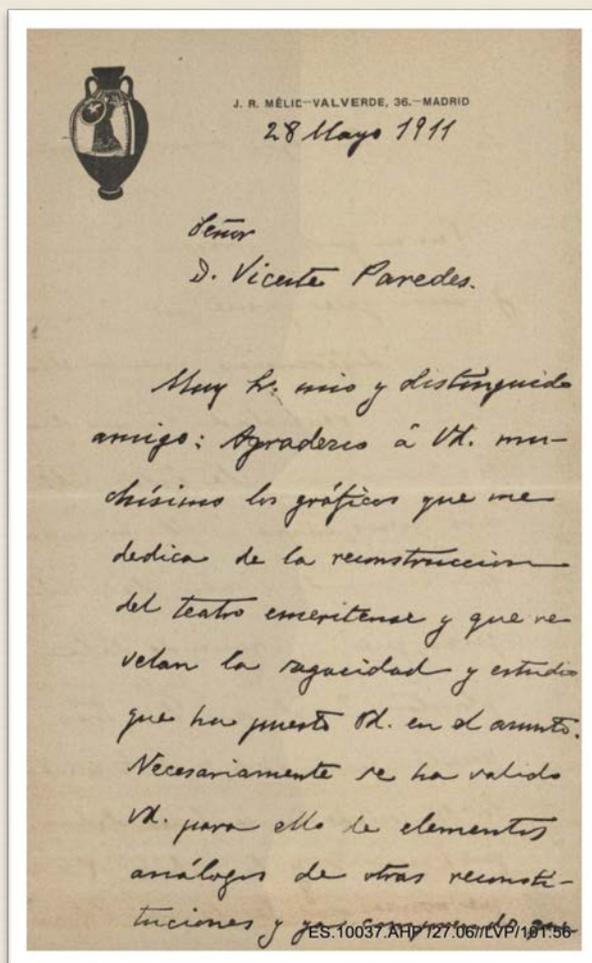 J. R. MÉLID-VALVERDE, 36.-MADRID
28 Mayo 1911
Señor
D. Vicente Paredes.
Muy Sr. mio y distinguido
amigo: Agradezco á Vd. mu-
chísimo los gráficos que me
dedica de la reconstruccion
del teatro emeritense y que re
velan la sagacidad y estudio
que ha puesto Vd. en el asunto.
Necesariamente se ha valido
Vd. para ello de elementos
análogos de otras reconsti-
tuciones y yo
ES.10037.AHP /27.06//LVP/101:56